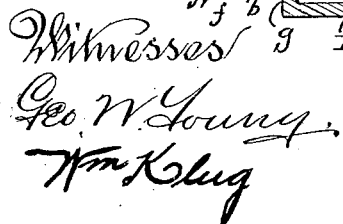 f b g
Witnesses
Geo. W. Young.
Wm Klug